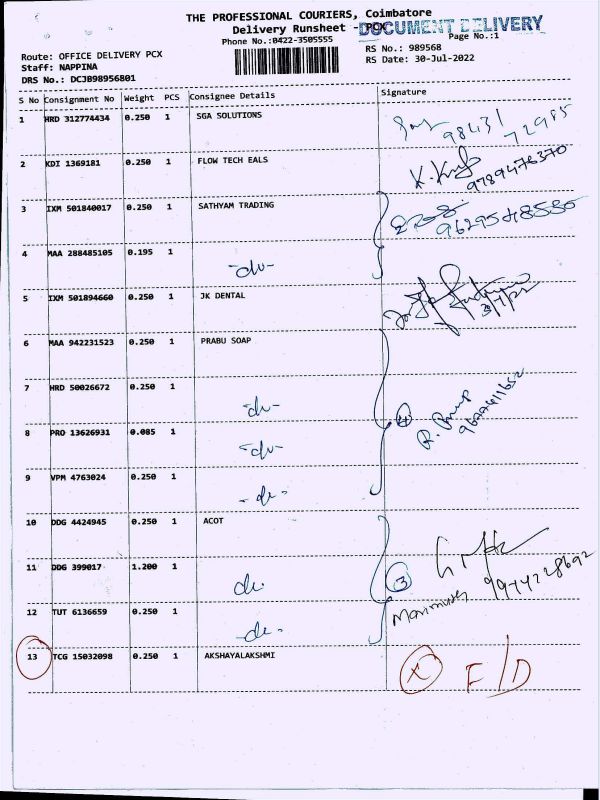 THE PROFESSIONAL COURIERS, Coimbatore
Delivery Runsheet - PCX
DOCUMENT DELIVERY
Phone No.:0422-3505555
Page No.:1
Route: OFFICE DELIVERY PCX
RS No.: 989568
Staff: NAPPINA
RS Date: 30-Jul-2022
DRS No.: DCJB98956801
S No Consignment No Weight PCS Consignee Details Signature
1 HRD 312774434 0.250 1 SGA SOLUTIONS
98431 72985
2 KDI 1369181 0.250 1 FLOW TECH EALS
9789476370
3 IXM 501840017 0.250 1 SATHYAM TRADING
9629548586
4 MAA 288485105 0.195 1 -do-
5 IXM 501894660 0.250 1 JK DENTAL
6 MAA 942231523 0.250 1 PRABU SOAP
7 HRD 50026672 0.250 1 -do-
4
8 PRO 13626931 0.085 1 -do-
9 VPM 4763024 0.250 1 -do-
10 DDG 4424945 0.250 1 ACOT
11 DDG 399017 1.200 1 do.
3
12 TUT 6136659 0.250 1 -do.
13 TCG 15032098 0.250 1 AKSHAYALAKSHMI
X F/D